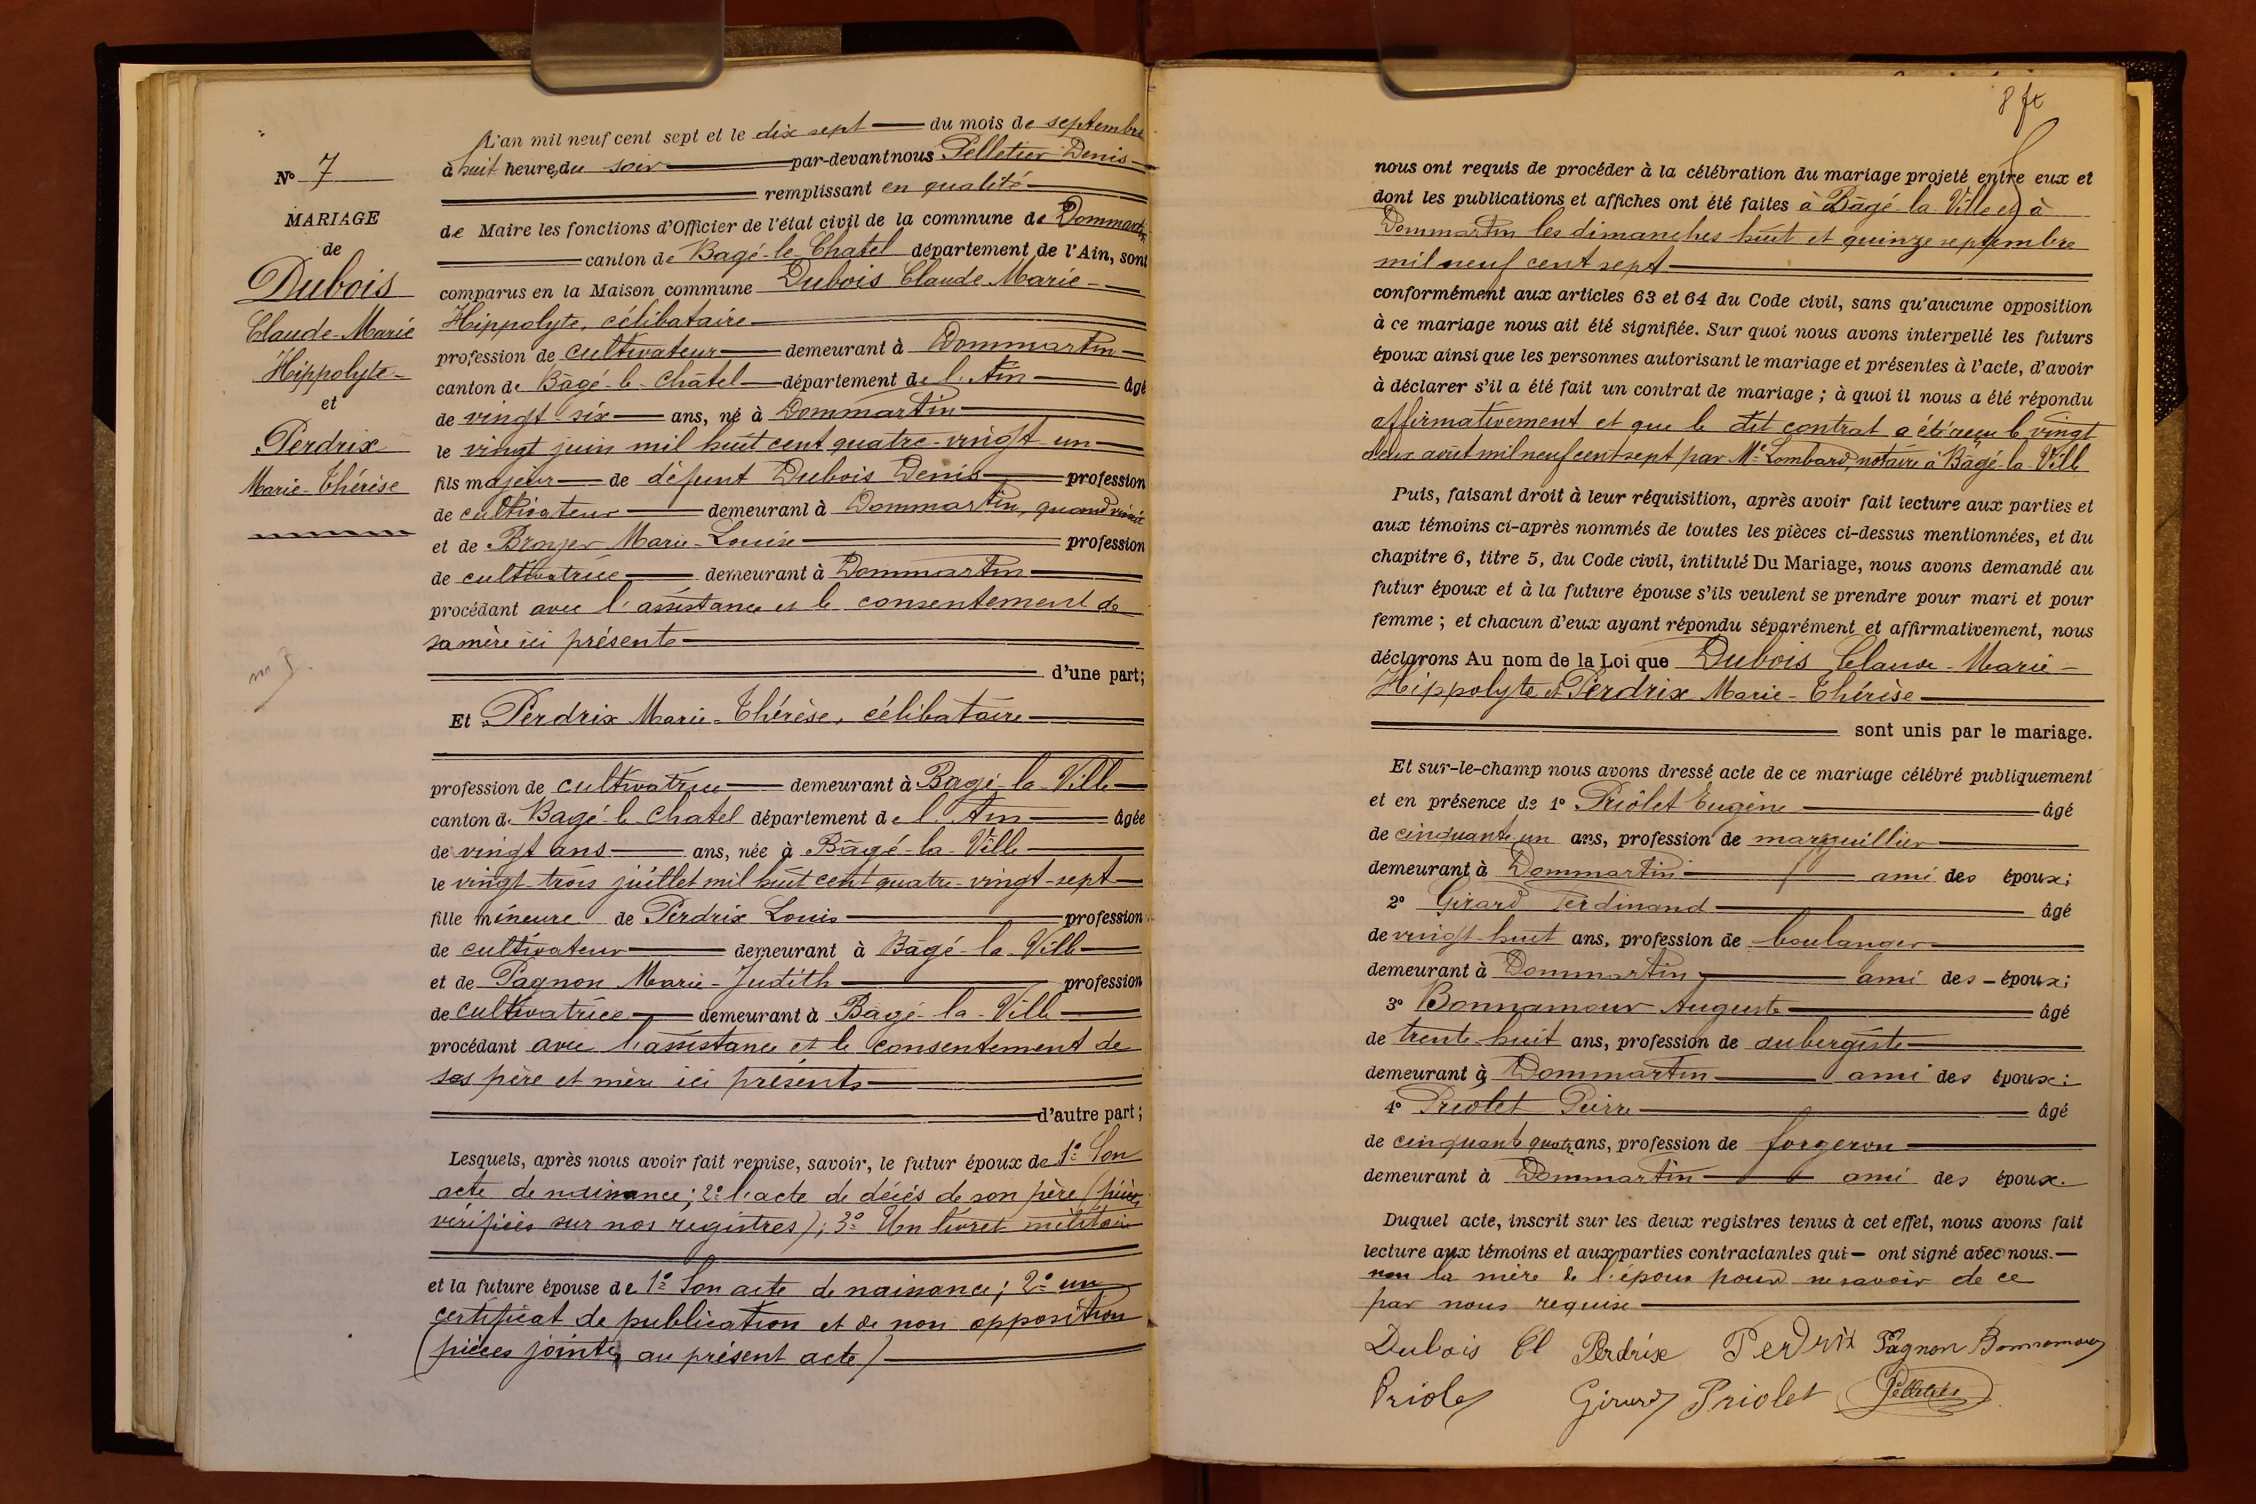 N° 7
MARIAGE
de
Dubois
Claude-Marie
Hippolyte
et
Perdrix
Marie-Thérèse
L'an mil neuf cent sept et le dix sept du mois de septembre
à huit heures du soir par-devant nous Pelletier Denis
remplissant en qualité
de Maire les fonctions d'Officier de l'état civil de la commune de Dommartin
canton de Bagé-le-Chatel département de l'Ain, sont
comparus en la Maison commune Dubois Claude Marie-
Hippolyte, célibataire
profession de cultivateur demeurant à Dommartin
canton de Bâgé-le-Châtel département de l'Ain âgé
de vingt-six ans, né à Dommartin
le vingt juin mil huit cent quatre-vingt-un
fils majeur de défunt Dubois Denis profession
de cultivateur demeurant à Dommartin, quand vivait
et de Broyer Marie-Louise profession
de cultivatrice demeurant à Dommartin
procédant avec l'assistance et le consentement de
sa mère ici présente
d'une part;
Et Perdrix Marie-Thérèse, célibataire
profession de cultivatrice demeurant à Bagé-la-Ville
canton de Bagé-le-Chatel département de l'Ain âgée
de vingt ans ans, née à Bâgé-la-Ville
le vingt-trois juillet mil huit cent quatre-vingt-sept
fille mineure de Perdrix Louis profession
de cultivateur demeurant à Bâgé-la-Ville
et de Pagnon Marie-Judith profession
de cultivatrice demeurant à Bâgé-la-Ville
procédant avec l'assistance et le consentement de
ses père et mère ici présents
d'autre part;
Lesquels, après nous avoir fait remise, savoir, le futur époux de 1° Son
acte de naissance; 2° l'acte de décès de son père (pièces
vérifiées sur nos registres); 3° Un livret militaire
et la future épouse de 1° Son acte de naissance; 2° un
certificat de publication et de non opposition
(pièces jointes au présent acte)
nous ont requis de procéder à la célébration du mariage projeté entre eux et
dont les publications et affiches ont été faites à Bâgé-la-Ville et à
Dommartin les dimanches huit et quinze septembre
mil neuf cent sept
conformément aux articles 63 et 64 du Code civil, sans qu'aucune opposition
à ce mariage nous ait été signifiée. Sur quoi nous avons interpellé les futurs
époux ainsi que les personnes autorisant le mariage et présentes à l'acte, d'avoir
à déclarer s'il a été fait un contrat de mariage; à quoi il nous a été répondu
affirmativement et que le dit contrat a été reçu le vingt
deux août mil neuf cent sept par Me Lombard notaire à Bâgé-la-Ville
Puis, faisant droit à leur réquisition, après avoir fait lecture aux parties et
aux témoins ci-après nommés de toutes les pièces ci-dessus mentionnées, et du
chapitre 6, titre 5, du Code civil, intitulé Du Mariage, nous avons demandé au
futur époux et à la future épouse s'ils veulent se prendre pour mari et pour
femme; et chacun d'eux ayant répondu séparément et affirmativement, nous
déclarons Au nom de la Loi que Dubois Claude-Marie-
Hippolyte et Perdrix Marie-Thérèse
sont unis par le mariage.
Et sur-le-champ nous avons dressé acte de ce mariage célébré publiquement
et en présence de 1° Priolet Eugène âgé
de cinquante-un ans, profession de marguillier
demeurant à Dommartin ami des époux;
2° Girard Ferdinand âgé
de vingt-huit ans, profession de boulanger
demeurant à Dommartin ami des époux;
3° Bonnamour Auguste âgé
de trente-huit ans, profession de aubergiste
demeurant à Dommartin ami des époux;
4° Priolet Pierre âgé
de cinquante quatre ans, profession de forgeron
demeurant à Dommartin ami des époux.
Duquel acte, inscrit sur les deux registres tenus à cet effet, nous avons fait
lecture aux témoins et aux parties contractantes qui ont signé avec nous.
non la mère de l'époux pour ne savoir de ce
par nous requise
Dubois Cl Perdrix Perdrix Pagnon Bonnamour
Priolet Girard Priolet Pelletier